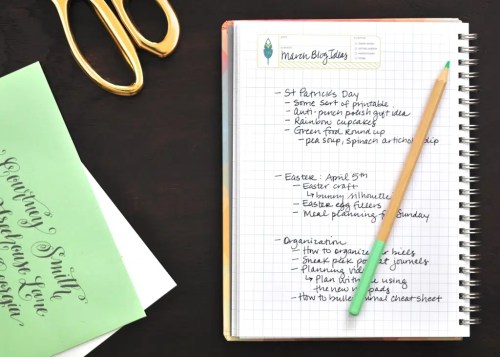 March Blog Ideas
- St Patrick's Day
- Some sort of printable
- Anti-pinch polish gift idea
- Rainbow cupcakes
- Green food round up
- pea soup, spinach artichoke dip
- Easter: April 5th
- Easter craft
↳ bunny silhouette
- Easter egg fillers
- Meal planning for Sunday
- Organization
- How to organize bills
- Sneak peek journals
- Planning video
↳ Plan with me using
the new pads
- How to bullet journal cheat sheet
Courtney Smith
Lane
Georgia